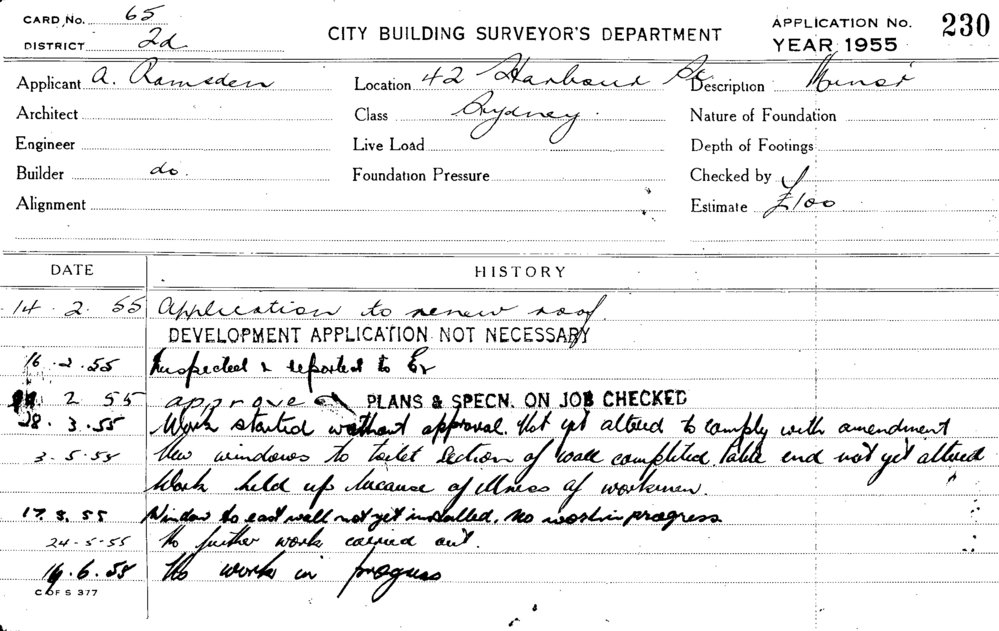 CARD No. 65
DISTRICT 2d
CITY BUILDING SURVEYOR'S DEPARTMENT
APPLICATION No. 230
YEAR 1955
Applicant A. Ramsden
Location 42 Harbour St
Description Minor
Architect
Class Sydney
Nature of Foundation
Engineer
Live Load
Depth of Footings
Builder do.
Foundation Pressure
Checked by
Alignment
Estimate £100
DATE HISTORY
14. 2. 55 Application to renew roof.
DEVELOPMENT APPLICATION NOT NECESSARY
16. 2. 55 Inspected & reported to
2 55 approved PLANS & SPECN. ON JOB CHECKED
28. 3. 55 Work started without approval. Not yet altered to comply with amendment
3. 5. 55 New windows to toilet section of wall completed. end not yet altered
Work held up because of illness of workmen.
17. 5. 55 Window to east wall not yet installed. No work in progress
24-5-55 No further work carried out.
6. 55 No work in progress
C OF S 377